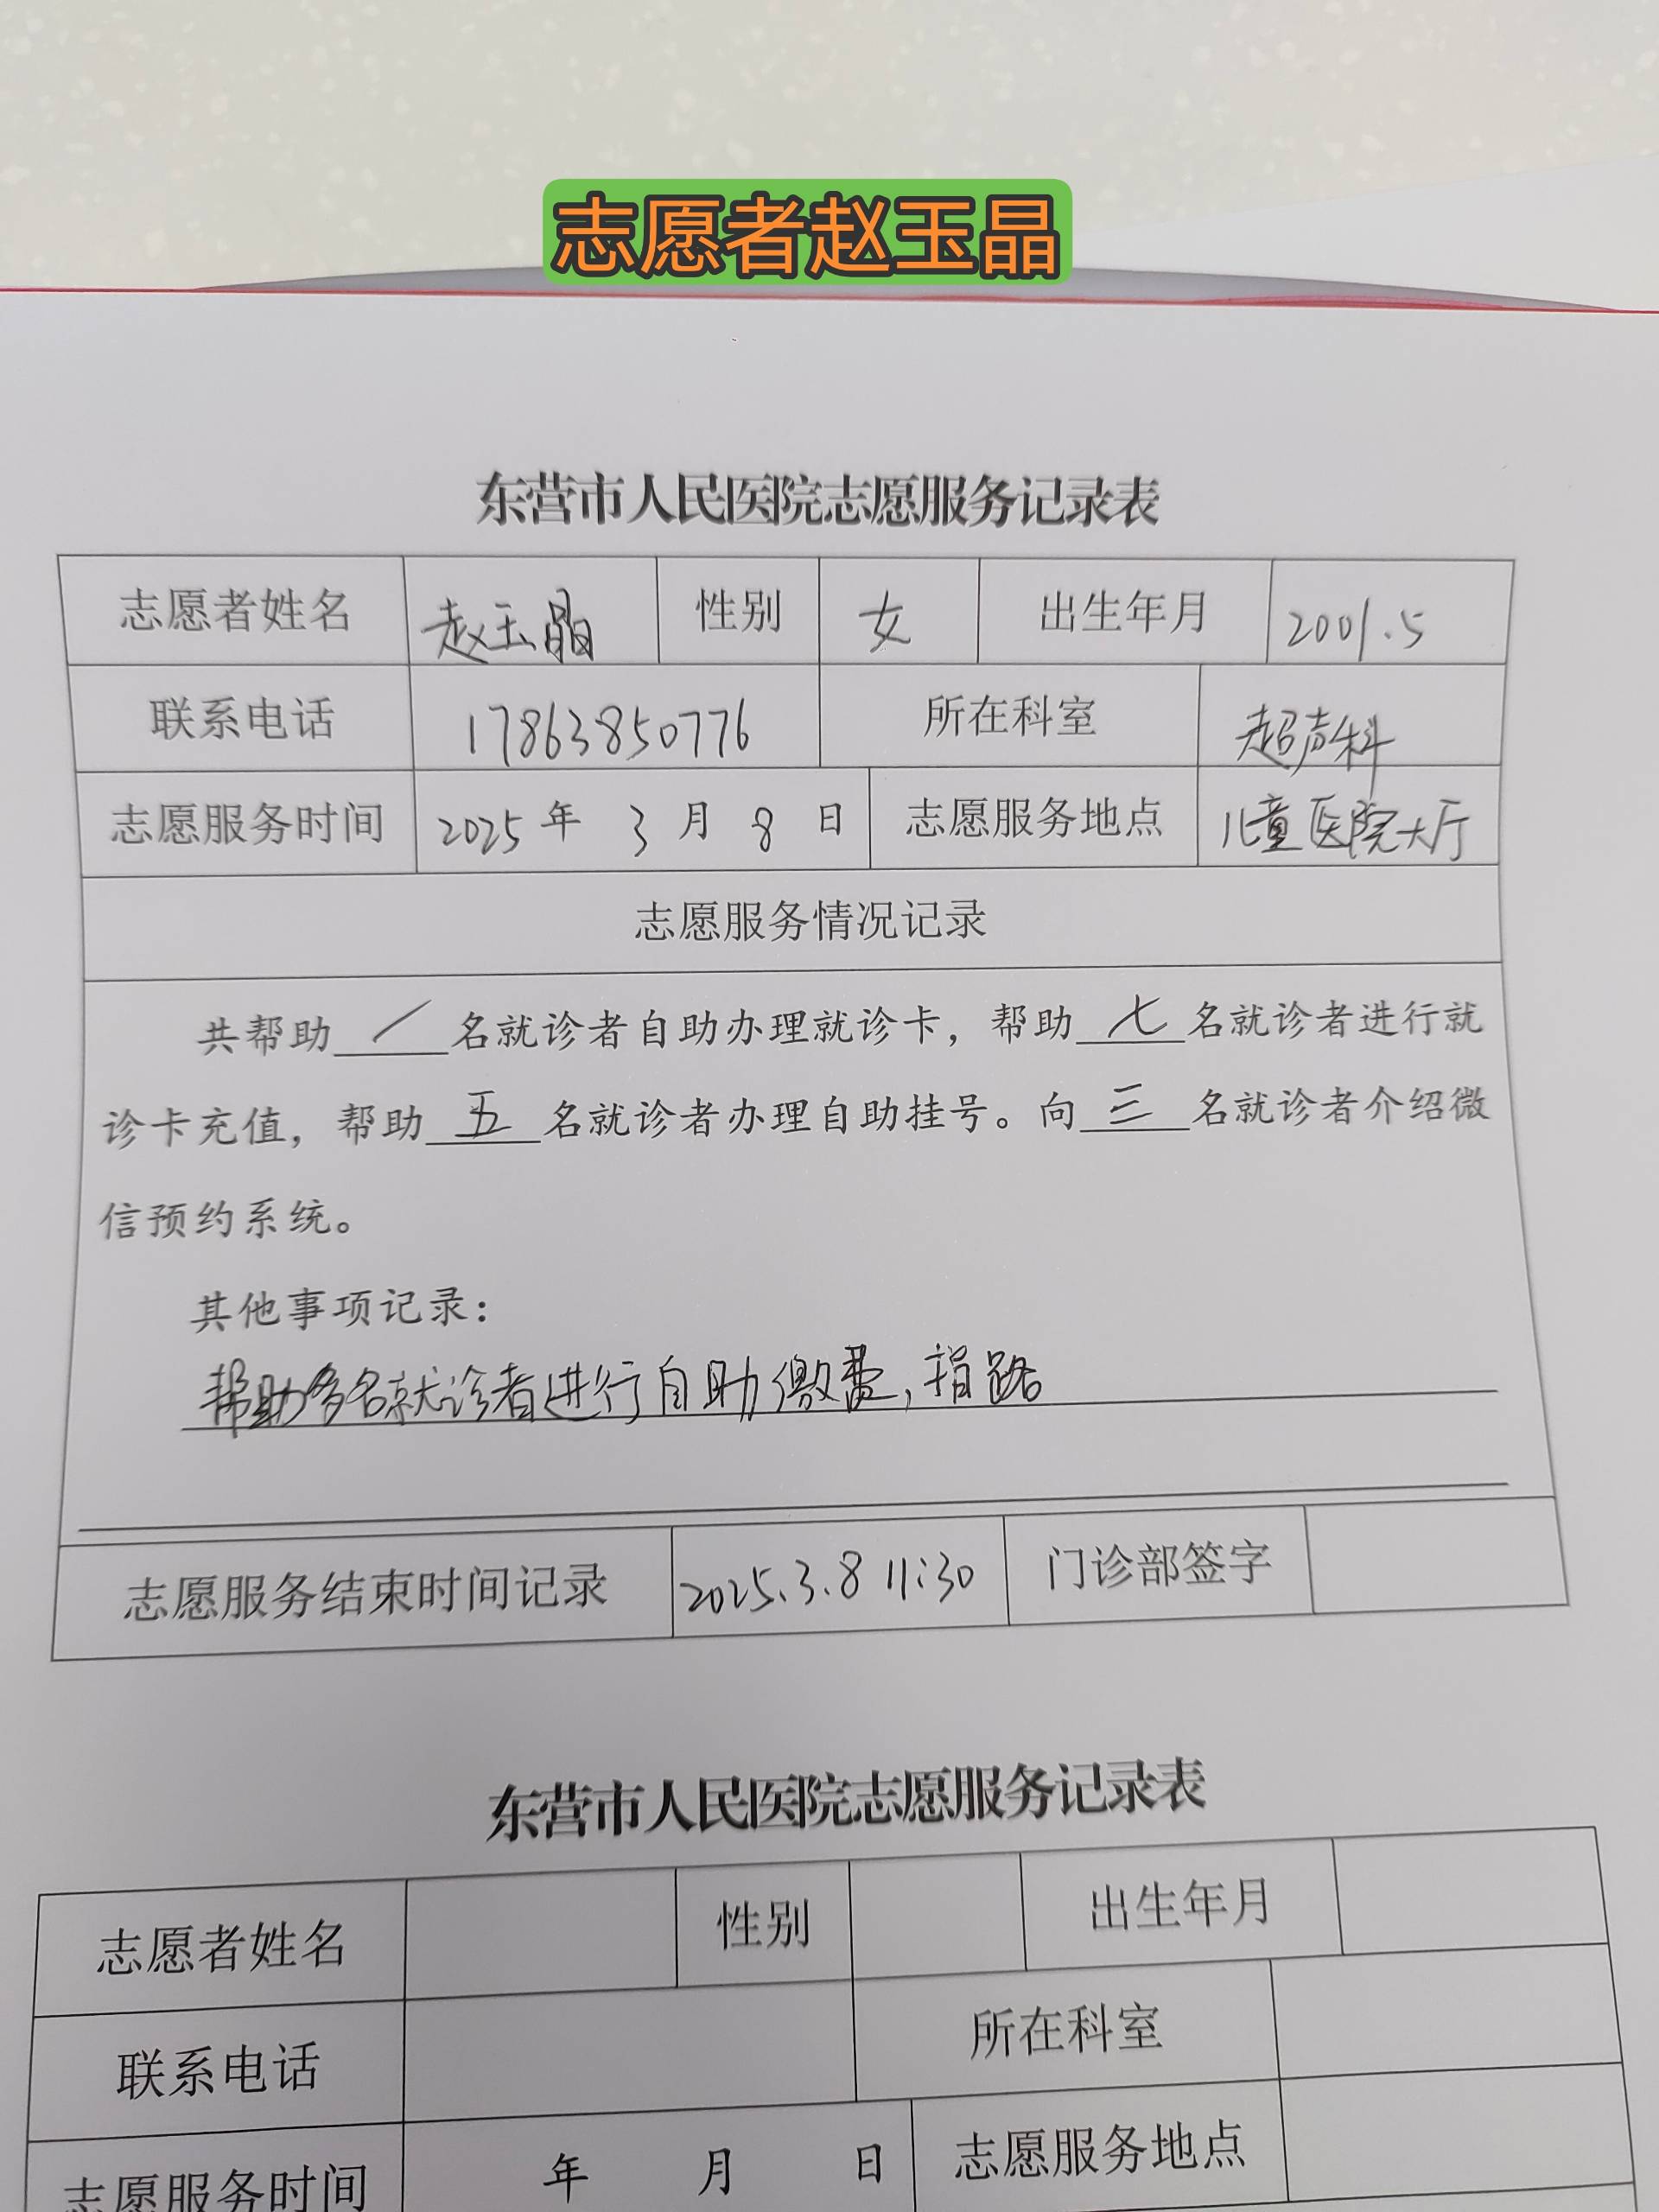 志愿者赵玉晶
东营市人民医院志愿服务记录表
志愿者姓名 赵玉晶 性别 女 出生年月 2001.5
联系电话 17863850776 所在科室 超声科
志愿服务时间 2025 年 3 月 8 日 志愿服务地点 儿童医院大厅
志愿服务情况记录
共帮助 / 名就诊者自助办理就诊卡，帮助 七 名就诊者进行就
诊卡充值，帮助 五 名就诊者办理自助挂号。向 三 名就诊者介绍微
信预约系统。
其他事项记录：
帮助多名就诊者进行自助缴费，指路
志愿服务结束时间记录 2025.3.8 11:30 门诊部签字
东营市人民医院志愿服务记录表
志愿者姓名 性别 出生年月
联系电话 所在科室
志愿服务时间 年 月 日 志愿服务地点